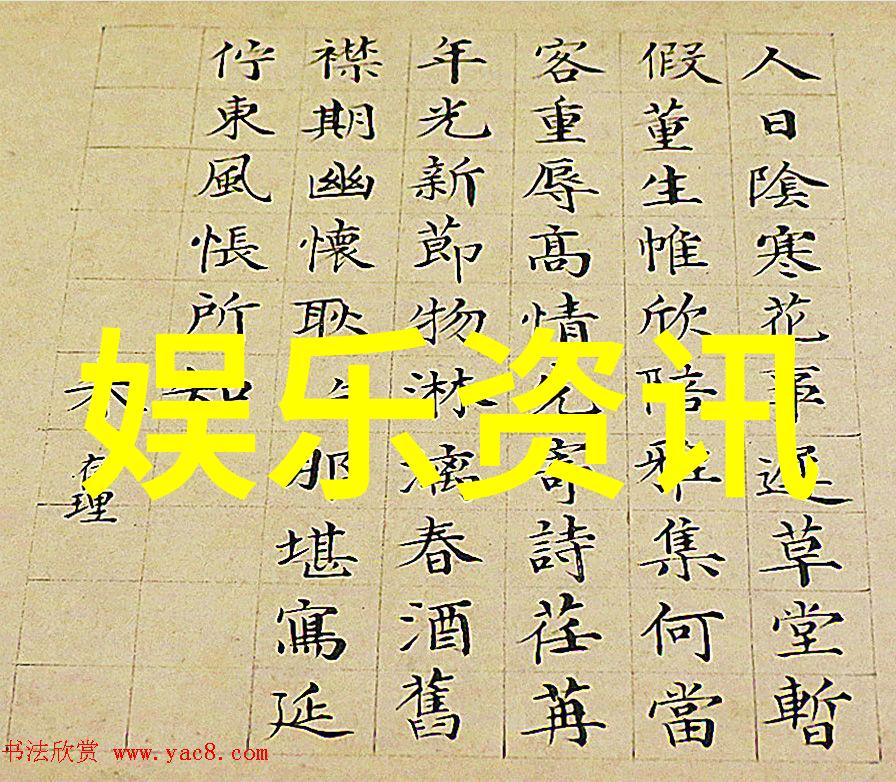 人日陰寒花事遲草堂暫
假董生帷欣陪雅集何當
客重辱高情先寄詩荏苒
年光新節物淋漓春酒舊
襟期幽懷耿那堪寫延
佇東風悵所知
存理
娱乐资讯
书法欣赏 www.yac8.com